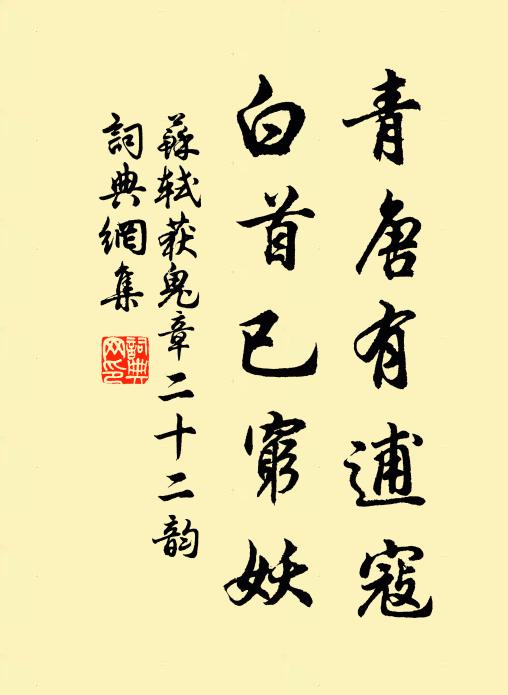 青唐有逋寇
白首已窮妖
蘇軾获鬼章二十二韵
詞典網集
詞典网印